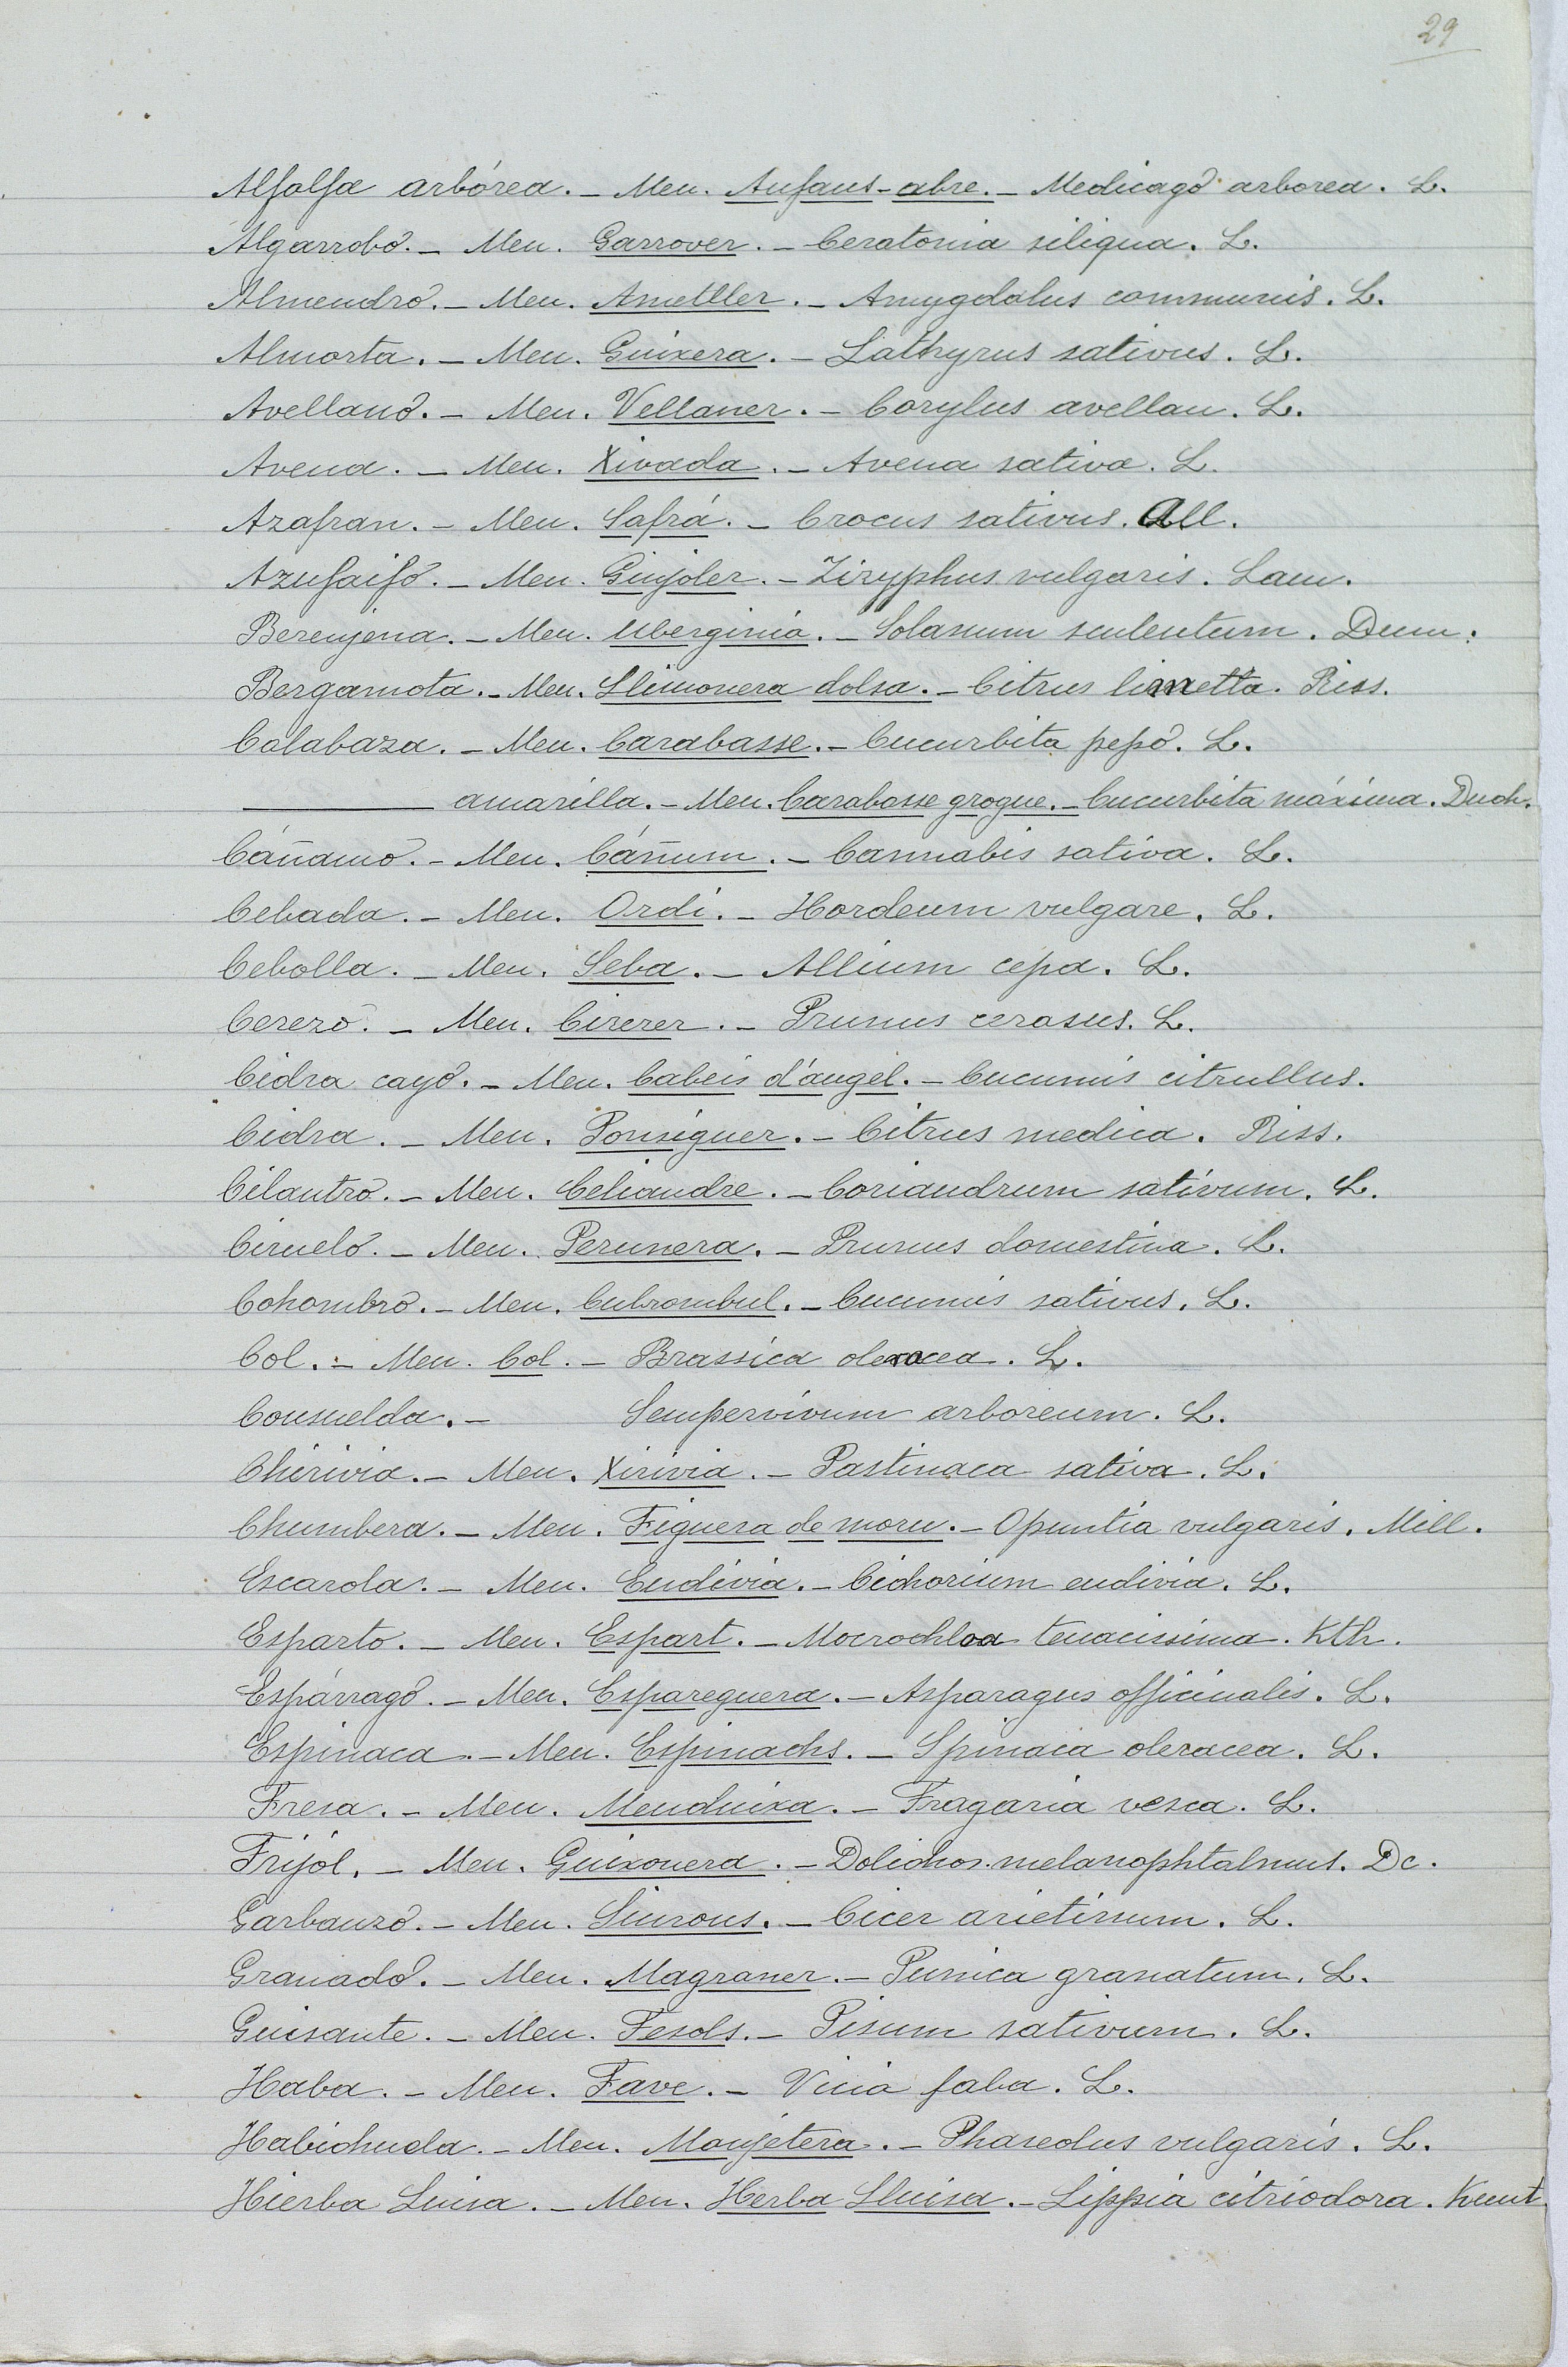 29
Alfalfa arbórea. – Men. Aufaus-abre. – Medicago arborea. L.
Algarrobo. – Men. Garrover. – Ceratonia siliqua. L.
Almendro. – Men. Ametller. – Amygdalus communis. L.
Almorta. – Men. Guixera. – Lathyrus sativus. L.
Avellano. – Men. Vellaner. – Corylus avellan. L.
Avena. – Men. Xivada. – Avena sativa. L.
Azafran. – Men. Safrá. – Crocus sativus. All.
Azufaifo. – Men. Ginjoler. – Zizyphus vulgaris. Lam.
Berenjena. – Men. Uberginia. – Solanum sculentum. Dum.
Bergamota. – Men. Llimonera dolsa. – Citrus limetta. Riss.
Calabaza. – Men. Carabasse. – Cucurbita pepo. L.
——— amarilla. – Men. Carabasse grogue. – Cucurbita máxima. Duch.
Cáñamo. – Men. Cáñum. – Cannabis sativa. L.
Cebada. – Men. Ordi. – Hordeum vulgare. L.
Cebolla. – Men. Seba. – Allium cepa. L.
Cerezo. – Men. Cirerer. – Prunus cerasus. L.
Cidra cayo. – Men. Cabeis d'angel. – Cucumis citrullus.
Cidra. – Men. Ponsiguer. – Citrus medica. Riss.
Cilantro. – Men. Celiandre. – Coriandrum sativum. L.
Ciruelo. – Men. Perunera. – Prunus domestica. L.
Cohombro. – Men. Cubrombul. – Cucumis sativus. L.
Col. – Men. Col. – Brassica oleracea. L.
Consuelda. – Sempervivum arboreum. L.
Chirivia. – Men. Xirivia. – Pastinaca sativa. L.
Chumbera. – Men. Figuera de moru. – Opuntia vulgaris. Mill.
Escarola. – Men. Endivia. – Cichorium endivia. L.
Esparto. – Men. Espart. – Mocrochloa tenacissima. Kth.
Espárrago. – Men. Espareguera. – Asparagus officinalis. L.
Espinaca. – Men. Espinachs. – Spinaia oleracea. L.
Fresa. – Men. Menduixa. – Fragaria vesca. L.
Frijol. – Men. Guixonera. – Dolichos melanophtalmus. Dc.
Garbanzo. – Men. Siurons. – Cicer arietinum. L.
Granado. – Men. Magraner. – Punica granatum. L.
Guisante. – Men. Fesols. – Pisum sativum. L.
Haba. – Men. Fave. – Vicia faba. L.
Habichuela. – Men. Monjetera. – Phaseolus vulgaris. L.
Hierba Luisa. – Men. Herba Lluisa. – Lippia citriodora. Kunt.